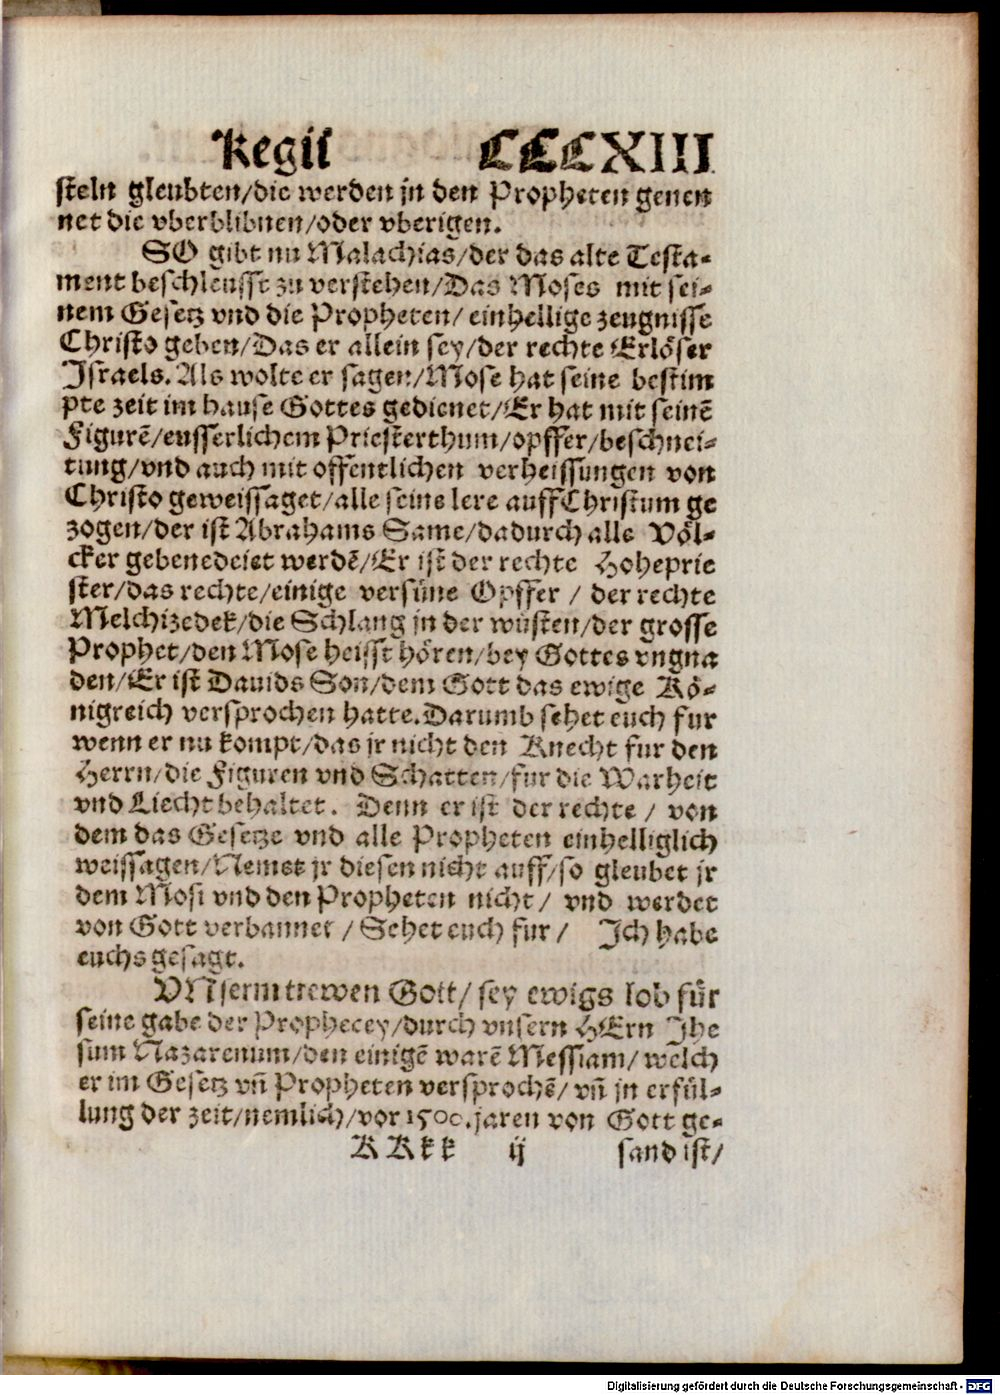 Regiſ CCCXIII
ſteln gleubten/die werden jn den Propheten genen
net die vberblibnen/oder vberigen.
SO gibt nu Malachias/der das alte Teſta-
ment beſchleuſſt zu verſtehen/Das Moſes mit ſei-
nem Geſetz vnd die Propheten/ einhellige zeugniſſe
Chriſto geben/Das er allein ſey/der rechte Erlöſer
Jſraels. Als wolte er ſagen/Moſe hat ſeine beſtim
pte zeit im hauſe Gottes gedienet/Er hat mit ſeinē
Figurē/euſſerlichem Prieſterthum/opffer/beſchnei-
tung/vnd auch mit offentlichen verheiſſungen von
Chriſto geweiſſaget/alle ſeine lere auff Chriſtum ge
zogen/der iſt Abrahams Same/dadurch alle Völ-
cker gebenedeiet werdē/Er iſt der rechte Hoheprie
ſter/das rechte/einige verſüne Opffer / der rechte
Melchizedek/die Schlang jn der wüſten/der groſſe
Prophet/den Moſe heiſſt hören/bey Gottes vngna
den/Er iſt Dauids Son/dem Gott das ewige Kö-
nigreich verſprochen hatte.Darumb ſehet euch fur
wenn er nu kompt/das jr nicht den Knecht fur den
Herrn/die Figuren vnd Schatten/fur die Warheit
vnd Liecht behaltet. Denn er iſt der rechte / von
dem das Geſetze vnd alle Propheten einhelliglich
weiſſagen/Nemet jr dieſen nicht auff/ſo gleubet jr
dem Moſi vnd den Propheten nicht / vnd werdet
von Gott verbannet / Sehet euch fur / Jch habe
euchs geſagt.
VNſerm trewen Gott/ ſey ewigs lob für
ſeine gabe der Prophecey/durch vnſern HErn Jhe
ſum Nazarenum/den einigē warē Meſſiam/ welch
er im Geſetz vn̄ Propheten verſprochē/ vn̄ jn erfül-
lung der zeit/nemlich/vor 1500.jaren von Gott ge-
K K k k ij ſand iſt/
Digitalisierung gefördert durch die Deutsche Forschungsgemeinschaft - DFG